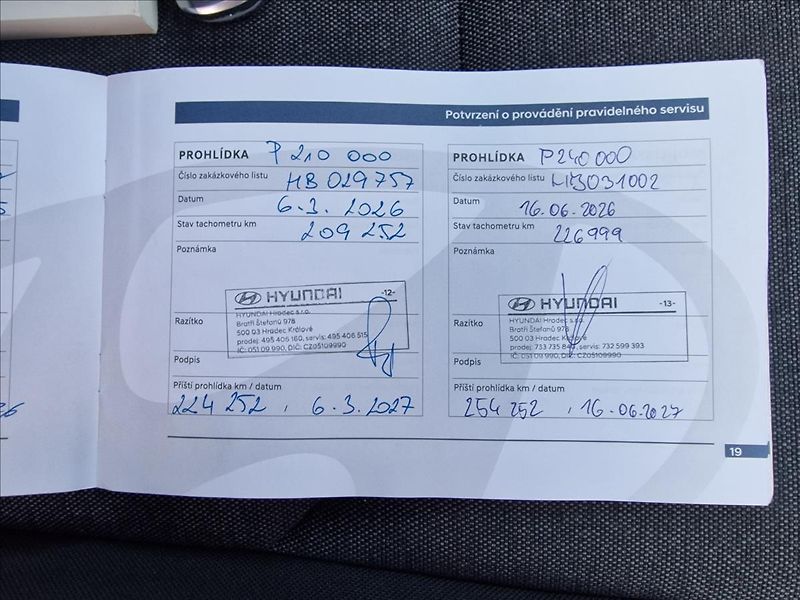 Potvrzení o provádění pravidelného servisu
PROHLÍDKA P 210 000
Číslo zakázkového listu HB 029757
Datum 6.3. 2026
Stav tachometru km 209 252
Poznámka
HYUNDAI -12-
HYUNDAI Hradec s.r.o.
Bratří Štefanů 978
500 03 Hradec Králové
prodej: 495 406 160, servis: 495 406 515
IČ: 051 09 990, DIČ: CZ05109990
Razítko
Podpis
Příští prohlídka km / datum
224 252, 6.3.2027
PROHLÍDKA P240000
Číslo zakázkového listu HB031002
Datum 16.06.2026
Stav tachometru km 226999
Poznámka
HYUNDAI -13-
HYUNDAI Hradec s.r.o.
Bratří Štefanů 978
500 03 Hradec Králové
prodej: 733 735 servis: 732 599 393
IČ: 051 09 990, DIČ: CZ05109990
Razítko
Podpis
Příští prohlídka km / datum
254 252, 16.06.2027
19